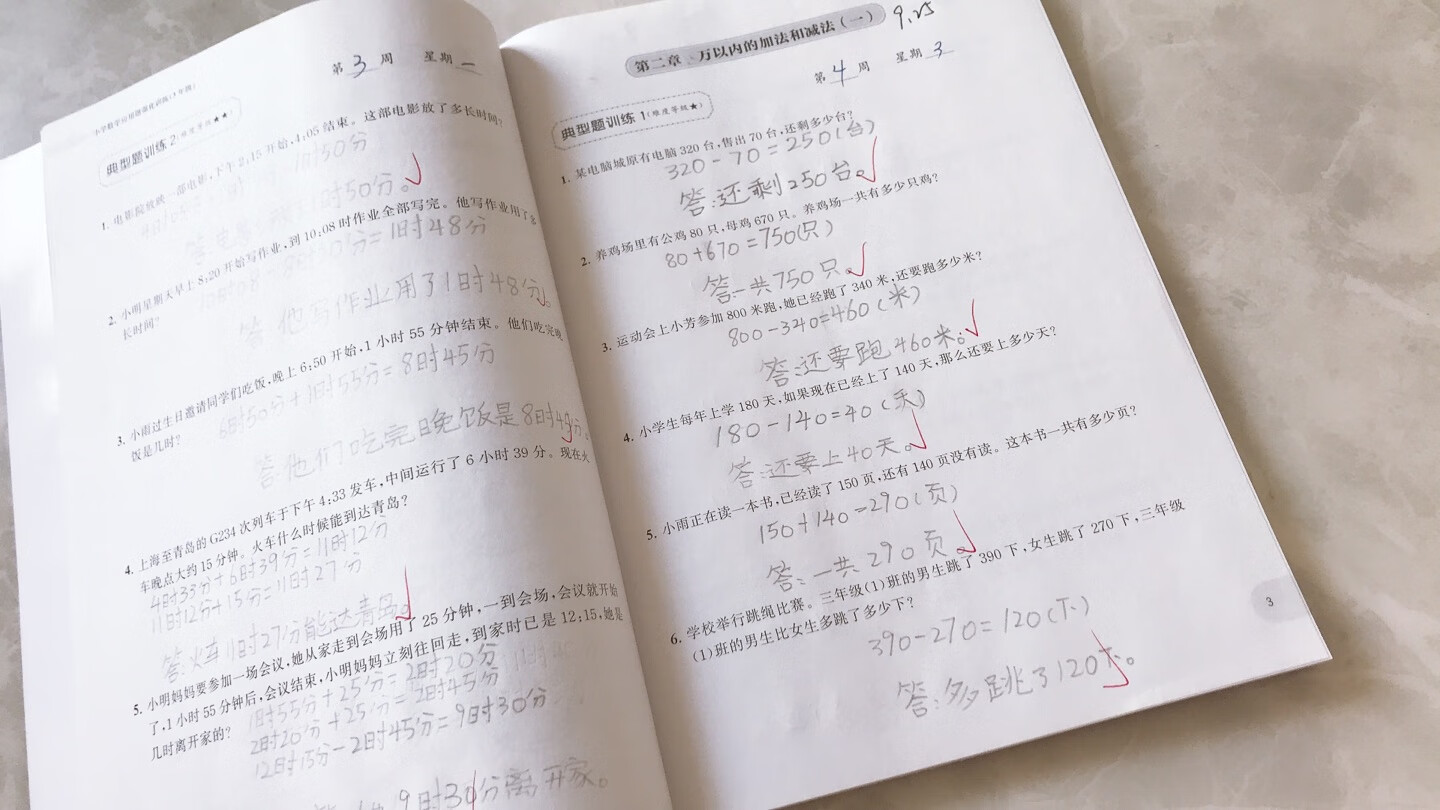 小学数学应用题强化训练(3年级)
第3周 星期一
典型题训练2(难度等级★★)
1. 电影院放映一部电影,下午2:15开始,4:05结束。这部电影放了多长时间?
1时50分
1时50分。
2. 小明星期天早上8:20开始写作业,到10:08时作业全部写完。他写作业用了多
长时间?
=1时48分
答:他写作业用了1时48分。
3. 小雨过生日邀请同学们吃饭,晚上6:50开始,1小时55分钟结束。他们吃完晚
饭是几时?
6时50分+1时55分=8时45分
答:他们吃完晚饭是8时45分。
4. 上海至青岛的G234次列车于下午4:33发车,中间运行了6小时39分。现在火
车晚点大约15分钟。火车什么时候能到达青岛?
4时33分+6时39分=11时12分
11时12分+15分=11时27分
答:火车11时27分能达青岛。
5. 小明妈妈要参加一场会议,她从家走到会场用了25分钟,一到会场,会议就开始
了,1小时55分钟后,会议结束,小明妈妈立刻往回走,到家时已是12:15,她是
几时离开家的?
1时55分+25分=2时20分
2时20分+25分=2时45分
12时15分-2时45分=9时30分
9时30分离开家。
第二章 万以内的加法和减法(一)
9.25
第4周 星期3
典型题训练1(难度等级★)
1. 某电脑城原有电脑320台,售出70台,还剩多少台?
320-70=250(台)
答:还剩250台。
2. 养鸡场里有公鸡80只,母鸡670只。养鸡场一共有多少只鸡?
80+670=750(只)
答:一共750只。
3. 运动会上小芳参加800米跑,她已经跑了340米,还要跑多少米?
800-340=460(米)
答:还要跑460米。
4. 小学生每年上学180天,如果现在已经上了140天,那么还要上多少天?
180-140=40(天)
答:还要上40天。
5. 小雨正在读一本书,已经读了150页,还有140页没有读。这本书一共有多少页?
150+140=290(页)
答:一共290页。
6. 学校举行跳绳比赛。三年级(1)班的男生跳了390下,女生跳了270下,三年级
(1)班的男生比女生多跳了多少下?
390-270=120(下)
答:多跳了120下。
3